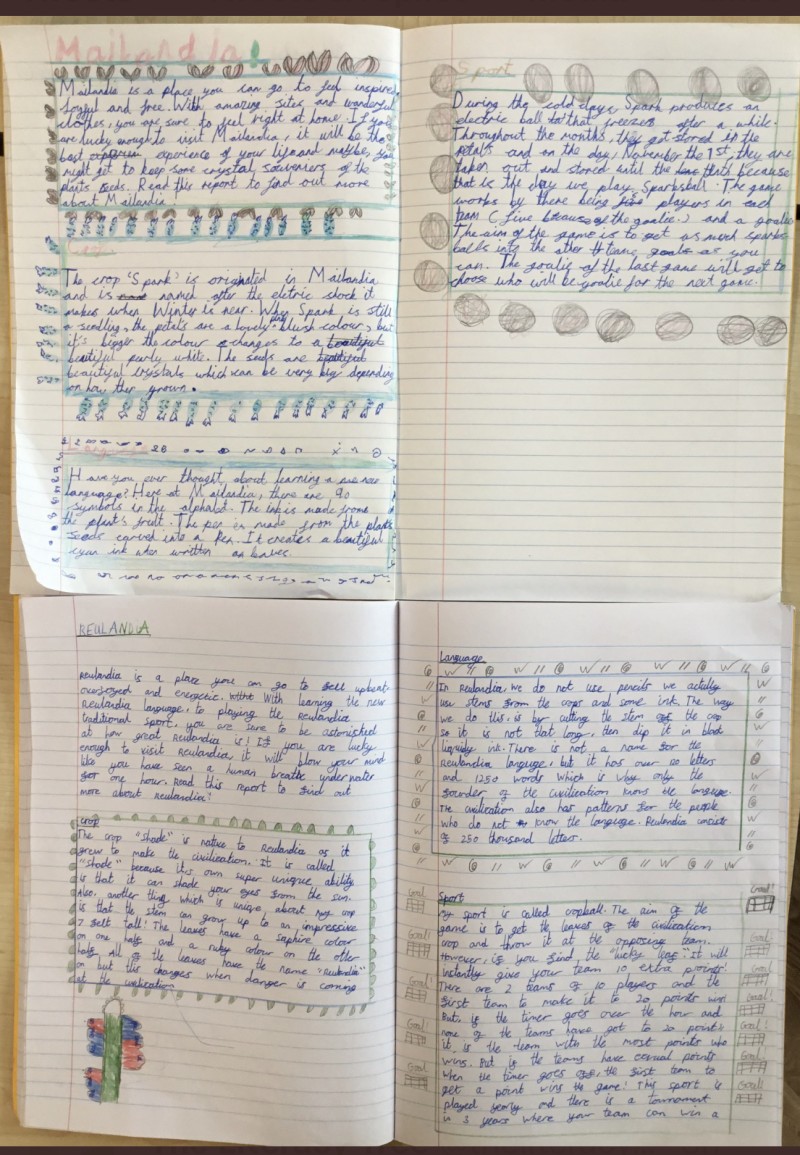 Mailandia
Mailandia is a place you can go to feel inspired
Joyful and free. With amazing sites and wonderful
clothes, you are sure to feel right at home. If you
are lucky enough to visit Mailandia, it will be the
best experience of your life and maybe, you
might get to keep some crystal souveniers of the
plants seeds. Read this report to find out more
about Mailandia.
Crop
The crop 'Spark' is originated in Mailandia
and is named after the eletric shock it
makes when Winter is near. When Spark is still
a seedling, the petals are a lovely blush colour, but
it's bigger the colour changes to a
beautiful pearly white. The seeds are
beautiful crystals which can be very big depending
on how they grown.
Language
Have you ever thought about learning a new
language? Here at Mailandia, there are 90
symbols in the alphabet. The ink is made from
the plant's fruit. The pen is made from the plants
seeds carved into a Pen. It creates a beautiful
cyan ink when written on leaves.
Sport
During the cold days, Spark produces an
electric ball that freezes after a while.
Throughout the months, they get stored in the
petals and on the day, November the 1st, they are
taken out and stored until the because
that is the day we play Sparksball. The game
works by there being players in each
team (five because of the goalie.) and a goalie
The aim of the game is to get as much sparks
balls into the other team goals as you
can. The goalie of the last game will get to
choose who will be goalie for the next game.
REULANDIA
Reulandia is a place you can go to feel upbeat,
overjoyed and energetic. With learning the new
Reulandia language, to playing the Reulandia
traditional sport, you are sure to be astonished
at how great Reulandia is! If you are lucky
enough to visit Reulandia, it will blow your mind
like you have seen a human breathe underwater
for one hour. Read this report to find out
more about Reulandia!
Crop
The crop "shade" is native to Reulandia as it
grew to make the civilication. It is called
"shade" because it's own super unique ability
is that it can shade your eyes from the sun.
Also, another thing which is unique about my crop
is that the stem can grow up to an impressive
7 feet tall! The leaves have a saphire colour
on one half and a ruby colour on the other
half. All of the leaves have the name "Reulandia"
on but this changes when danger is coming
at the civilication.
Language
In Reulandia, we do not use pencils we actually
use stems from the crops and some ink. The way
we do this, is by cutting the stem off the crop
so it is not that long, then dip it in black
liquidy ink. There is not a name for the
Reulandia language, but it has over 50 letters
and 1250 words which is why only the
founder of the civilication knows the language.
The civilication also has patterns for the people
who do not know the language. Reulandia consists
of 250 thousand letters.
Sport
My sport is called cropball. The aim of the
game is to get the leaves of the civilication
crop and throw it at the opposing team.
However, if you find, the "lucky leaf" it will
instantly give your team 10 extra points!
There are 2 teams of 10 players and the
first team to make it to 20 points wins!
But, if the timer goes over the hour and
none of the teams have got to 20 points
it is the team with the most points who
wins. But if the teams have eqrual points
when the timer goes off, the first team to
get a point wins the game! This sport is
played yearly and there is a tournament
in 3 years where your team can win a
Goal!
Goal!
Goal!
Goal!
Goal!
Goal!
Goal!
Goal!
Goal!